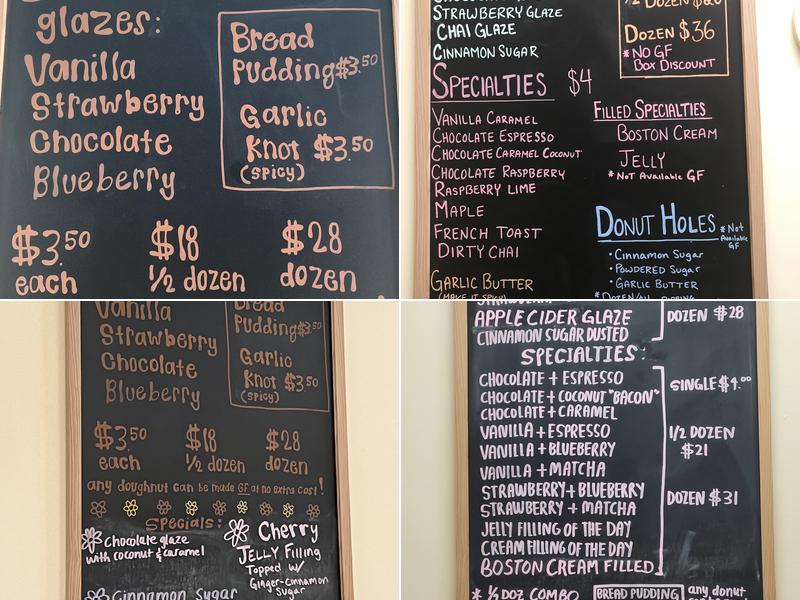 glazes:
Vanilla
Strawberry
Chocolate
Blueberry
Bread
Pudding $3.50
Garlic
Knot $3.50
(spicy)
$3.50 each
$18 ½ dozen
$28 dozen
STRAWBERRY GLAZE
CHAI GLAZE
CINNAMON SUGAR
½ DOZEN
DOZEN $36
*NO GF
BOX DISCOUNT
SPECIALTIES $4
VANILLA CARAMEL
CHOCOLATE ESPRESSO
CHOCOLATE CARAMEL COCONUT
CHOCOLATE RASPBERRY
RASPBERRY LIME
MAPLE
FRENCH TOAST
DIRTY CHAI
GARLIC BUTTER
(MAKE IT SPICY)
FILLED SPECIALTIES
BOSTON CREAM
JELLY
*NOT AVAILABLE GF
DONUT HOLES *Not
Available
GF
•Cinnamon Sugar
•Powdered Sugar
•GARLIC BUTTER
Vanilla
Strawberry
Chocolate
Blueberry
Bread
Pudding $3.50
Garlic
Knot $3.50
(spicy)
$3.50 each
$18 ½ dozen
$28 dozen
any doughnut can be made GF at no extra cost!
Specials:
Chocolate glaze
with coconut & caramel
Cherry
JELLY Filling
Topped w/
Ginger-Cinnamon
Sugar
Cinnamon Sugar
APPLE CIDER GLAZE
CINNAMON SUGAR DUSTED
DOZEN $28
SPECIALTIES:
CHOCOLATE + ESPRESSO
CHOCOLATE + COCONUT "BACON"
CHOCOLATE + CARAMEL
VANILLA + ESPRESSO
VANILLA + BLUEBERRY
VANILLA + MATCHA
STRAWBERRY + BLUEBERRY
STRAWBERRY + MATCHA
JELLY FILLING OF THE DAY
CREAM FILLING OF THE DAY
BOSTON CREAM FILLED
SINGLE $4.00
1/2 DOZEN
$21
DOZEN $31
* ½ DOZ COMBO
BREAD PUDDING
any donut